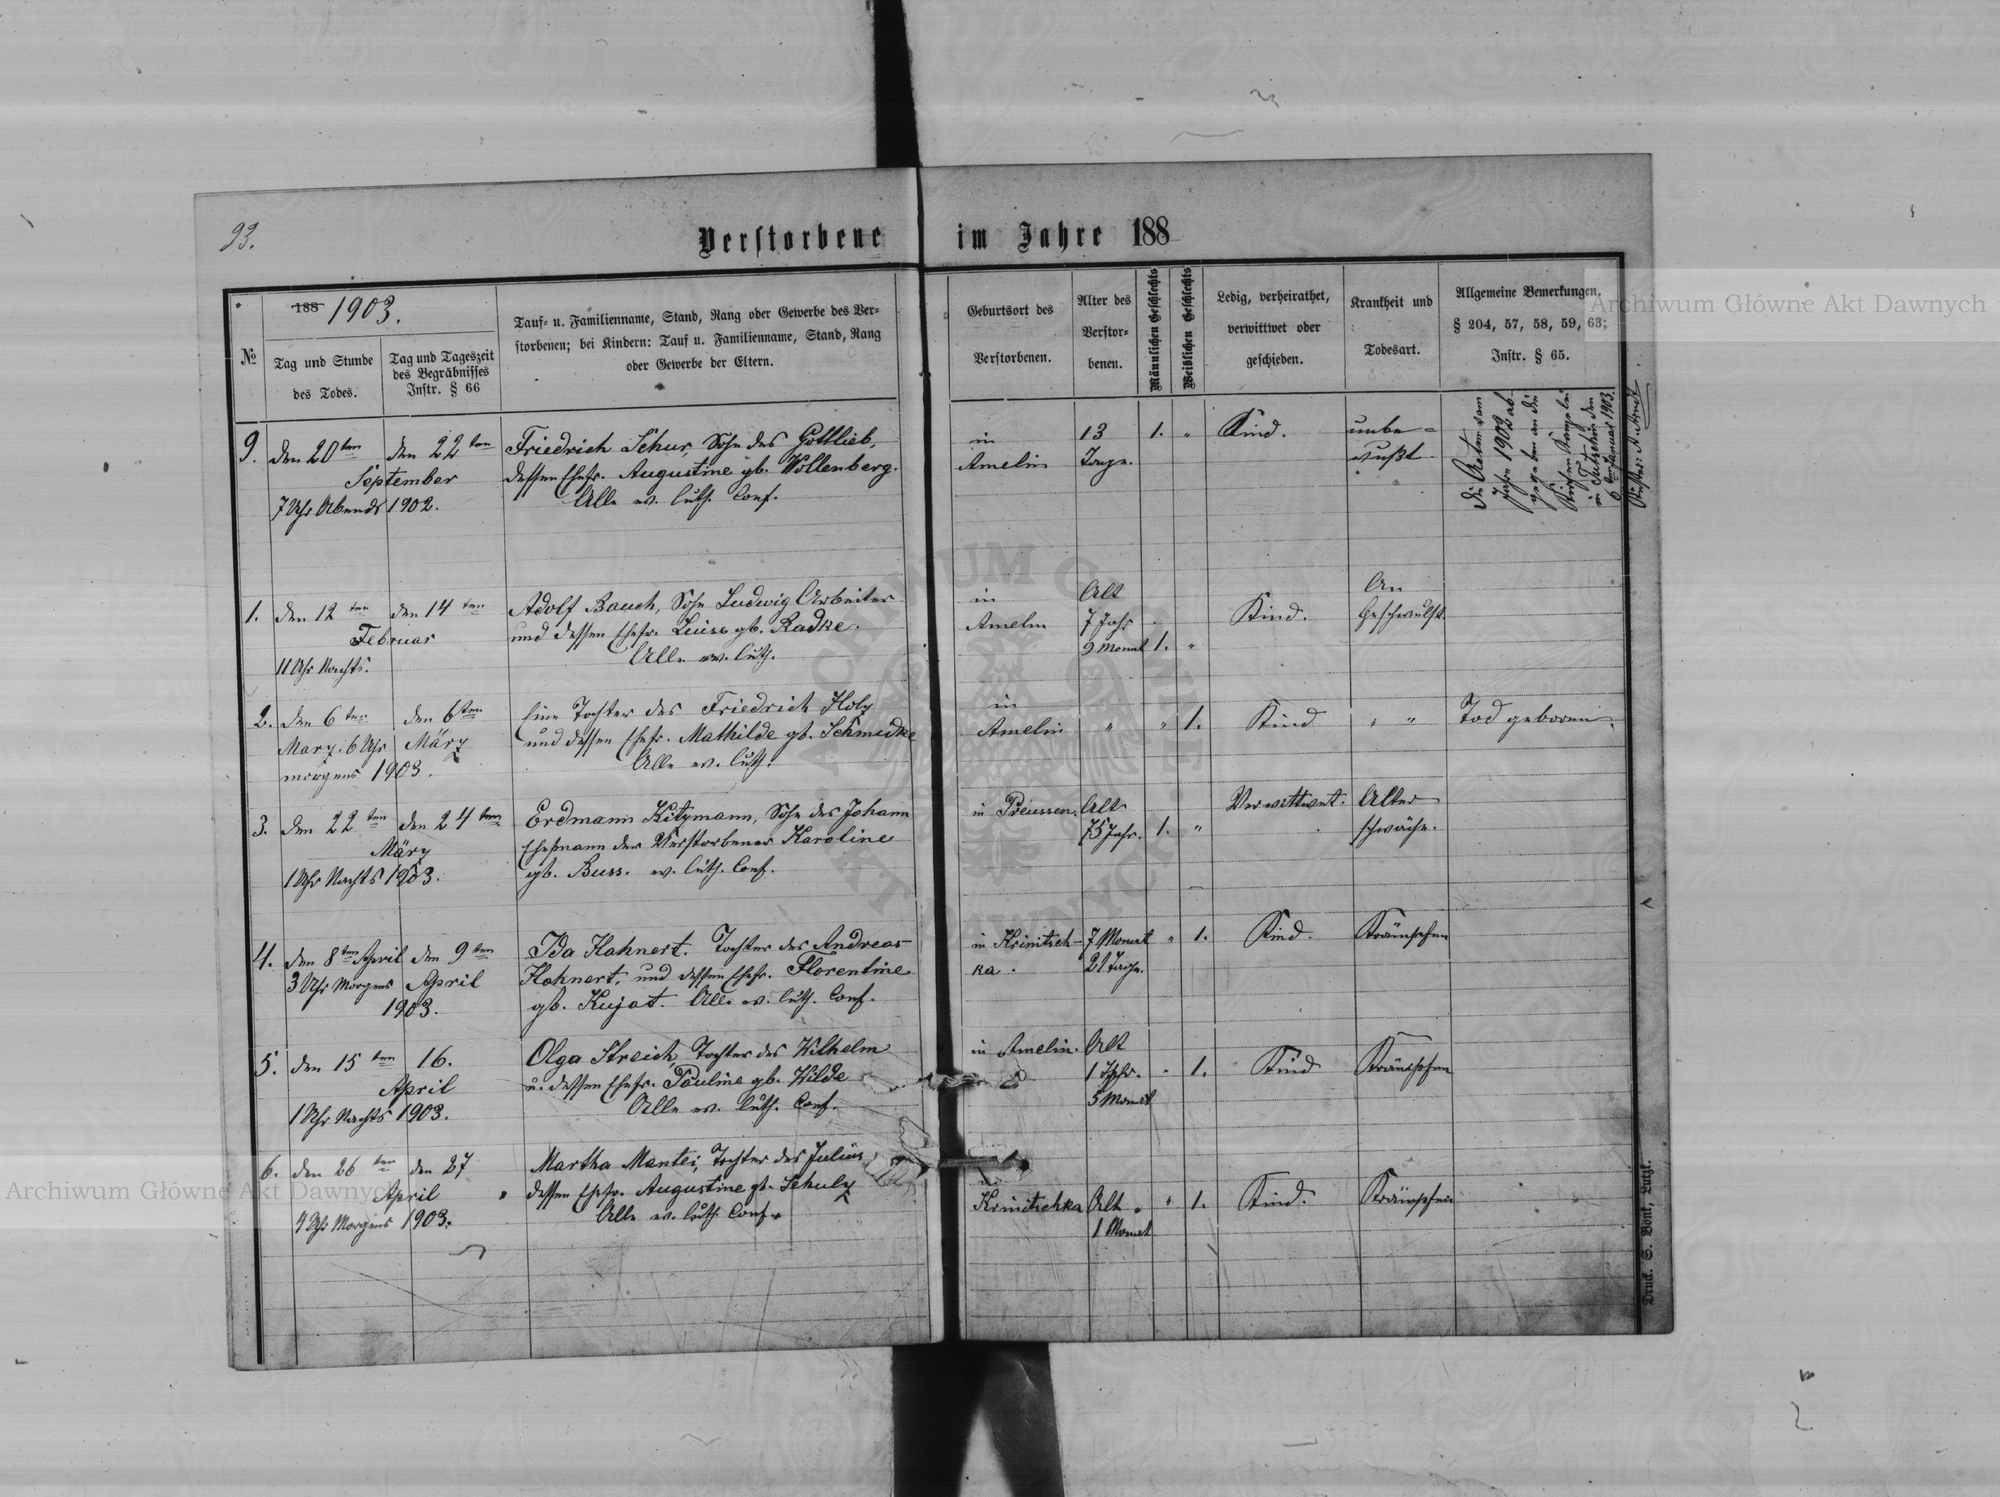 93.
Verstorbene im Jahre 188
188 1903.
№
Tag und Stunde
des Todes.
Tag und Tageszeit
des Begräbnisses
Instr. § 66
Tauf- u. Familienname, Stand, Rang oder Gewerbe des Ver-
storbenen; bei Kindern: Tauf u. Familienname, Stand, Rang
oder Gewerbe der Eltern.
Geburtsort des
Verstorbenen.
Alter des
Verstor-
benen.
Männlichen Geschlechts
Weiblichen Geschlechts
Ledig, verheirathet,
verwittwet oder
geschieden.
Krankheit und
Todesart.
Allgemeine Bemerkungen,
§ 204, 57, 58, 59, 63;
Instr. § 65.
9. den 20ten den 22ten
September
7 Uhr Abends 1902.
Friedrich Schur, Sohn des Gottlieb,
dessen Ehefr. Augustine gb. Wollenberg.
Alle ev. luth. Conf.
in
Amelin
13
Tage.
1. "
Kind.
unbe=
wußt.
Die Acten vom
Jahre 1902 ab
gegeben an die
in den
6 1903.
1. den 12ten den 14ten
Februar
11 Uhr Nachts.
Adolf Bauch, Sohn Ludwig Arbeiter
und dessen Ehefr. Luise gb. Radke.
Alle ev. luth.
in
Amelin
Alt
7 Jahr
9 Monat 1. "
Kind.
An
Geschwulst.
2. den 6ten den 6ten
Marz. 6 Uhr März
morgens 1903.
Eine Tochter des Friedrich Holz
und dessen Ehefr. Mathilde gb. Schmidke
Alle ev. luth.
in
Amelin " " 1.
Kind " "
Tod geboren.
3. den 22ten den 24ten
März
1 Uhr Nachts 1903.
Erdmann Kitzmann, Sohn des Johann
Ehemann der Verstorbener Karoline
gb. Buss. ev. luth. Conf.
in Preussen. Alt
75 Jahr. 1. "
Verwittwet.
Alter
schwäche.
4. den 8ten April den 9ten
3 Uhr Morgens April
1903.
Ida Hahnert. Tochter des Andreas
Hahnert, und dessen Ehefr. Florentine
gb. Kujat. Alle ev. luth. Conf.
in Krinitsch-
ka.
7 Monat
21 Tage.
" 1.
Kind.
5. den 15ten 16.
April
1 Uhr Nachts 1903.
Olga Streich, Tochter des Wilhelm
u. dessen Ehefr. Pauline gb. Wilde
Alle ev. luth. Conf.
in Amelin. Alt
1 Jahr.
5 Monat
" 1.
Kind
6. den 26ten den 27
April
4 Uhr Morgens 1903.
Martha Mantei, Tochter des Julius
dessen Ehefr. Augustine gb. Schulz
Alle ev. luth. Conf.
in
Krinitschka
Alt
1 Monat
" 1.
Kind.
Druck. S. Bonk, Lutzk.
Archiwum Główne Akt Dawnych
Archiwum Główne Akt Dawnych
ARCHIWUM GŁÓWNE AKT DAWNYCH